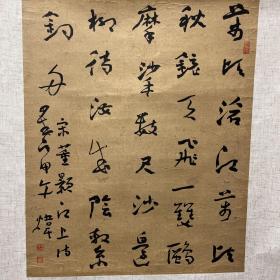 萬頃滄江萬頃
秋鏡天飛一雙鷗
摩挲數尺沙邊
柳待汝成陰繫
釣舟
宋董穎江上詩
甲午